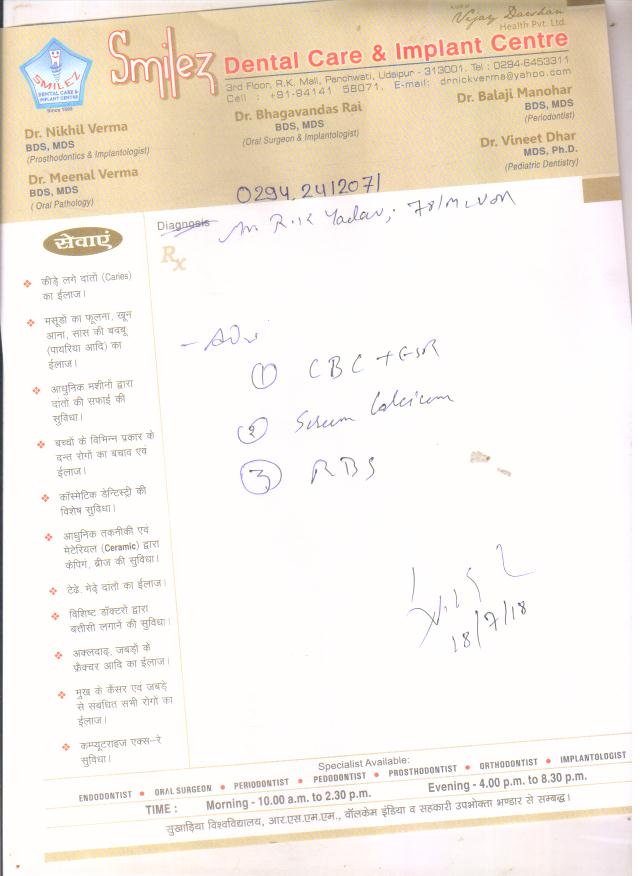 A unit of
Vijay Darshan
Health Pvt. Ltd.
Smilez
Dental Care & Implant Centre
SMILEZ
DENTAL CARE &
IMPLANT CENTRE
Since 1999
3rd Floor, R.K. Mall, Panchwati, Udaipur - 313001, Tel : 0294-6453311
Cell : +91-94141 58071, E-mail: drnickverma@yahoo.com
Dr. Nikhil Verma
BDS, MDS
(Prosthodontics & Implantologist)
Dr. Meenal Verma
BDS, MDS
( Oral Pathology)
Dr. Bhagavandas Rai
BDS, MDS
(Oral Surgeon & Implantologist)
Dr. Balaji Manohar
BDS, MDS
(Periodontist)
Dr. Vineet Dhar
MDS, Ph.D.
(Pediatric Dentistry)
0294, 2412071
Diagnosis
Mr R.K Yadav; 78/M
Rx
- Adv
① CBC + ESR
② Serum Calcium
③ RBS
18/7/18
सेवाएं
कीड़े लगे दांतों (Caries)
का ईलाज।
मसूडों का फूलना, खून
आना, सास की बदबू
(पायरिया आदि) का
ईलाज।
आधुनिक मशीनों द्वारा
दांतो की सफाई की
सुविधा।
बच्चों के विभिन्न प्रकार के
दन्त रोगों का बचाव एवं
ईलाज।
कॉस्मेटिक डेन्टिस्ट्री की
विशेष सुविधा।
आधुनिक तकनीकी एवं
मेटेरियल (Ceramic) द्वारा
केपिंग, ब्रीज की सुविधा।
टेढे, मेढ़े दांतो का ईलाज।
विशिष्ट डॉक्टरों द्वारा
बत्तीसी लगाने की सुविधा।
अक्लदाढ़, जबड़ों के
फ्रैक्चर आदि का ईलाज।
मुख के कैंसर एवं जबड़े
से संबंधित सभी रोगों का
ईलाज।
कम्प्यूटराइज एक्स-रे
सुविधा।
Specialist Available:
ENDODONTIST • ORAL SURGEON • PERIODONTIST • PEDODONTIST • PROSTHODONTIST • ORTHODONTIST • IMPLANTOLOGIST
TIME : Morning - 10.00 a.m. to 2.30 p.m. Evening - 4.00 p.m. to 8.30 p.m.
सुखाड़िया विश्वविद्यालय, आर.एस.एम.एम., वॉलकेम इंडिया व सहकारी उपभोक्ता भण्डार से सम्बद्ध।